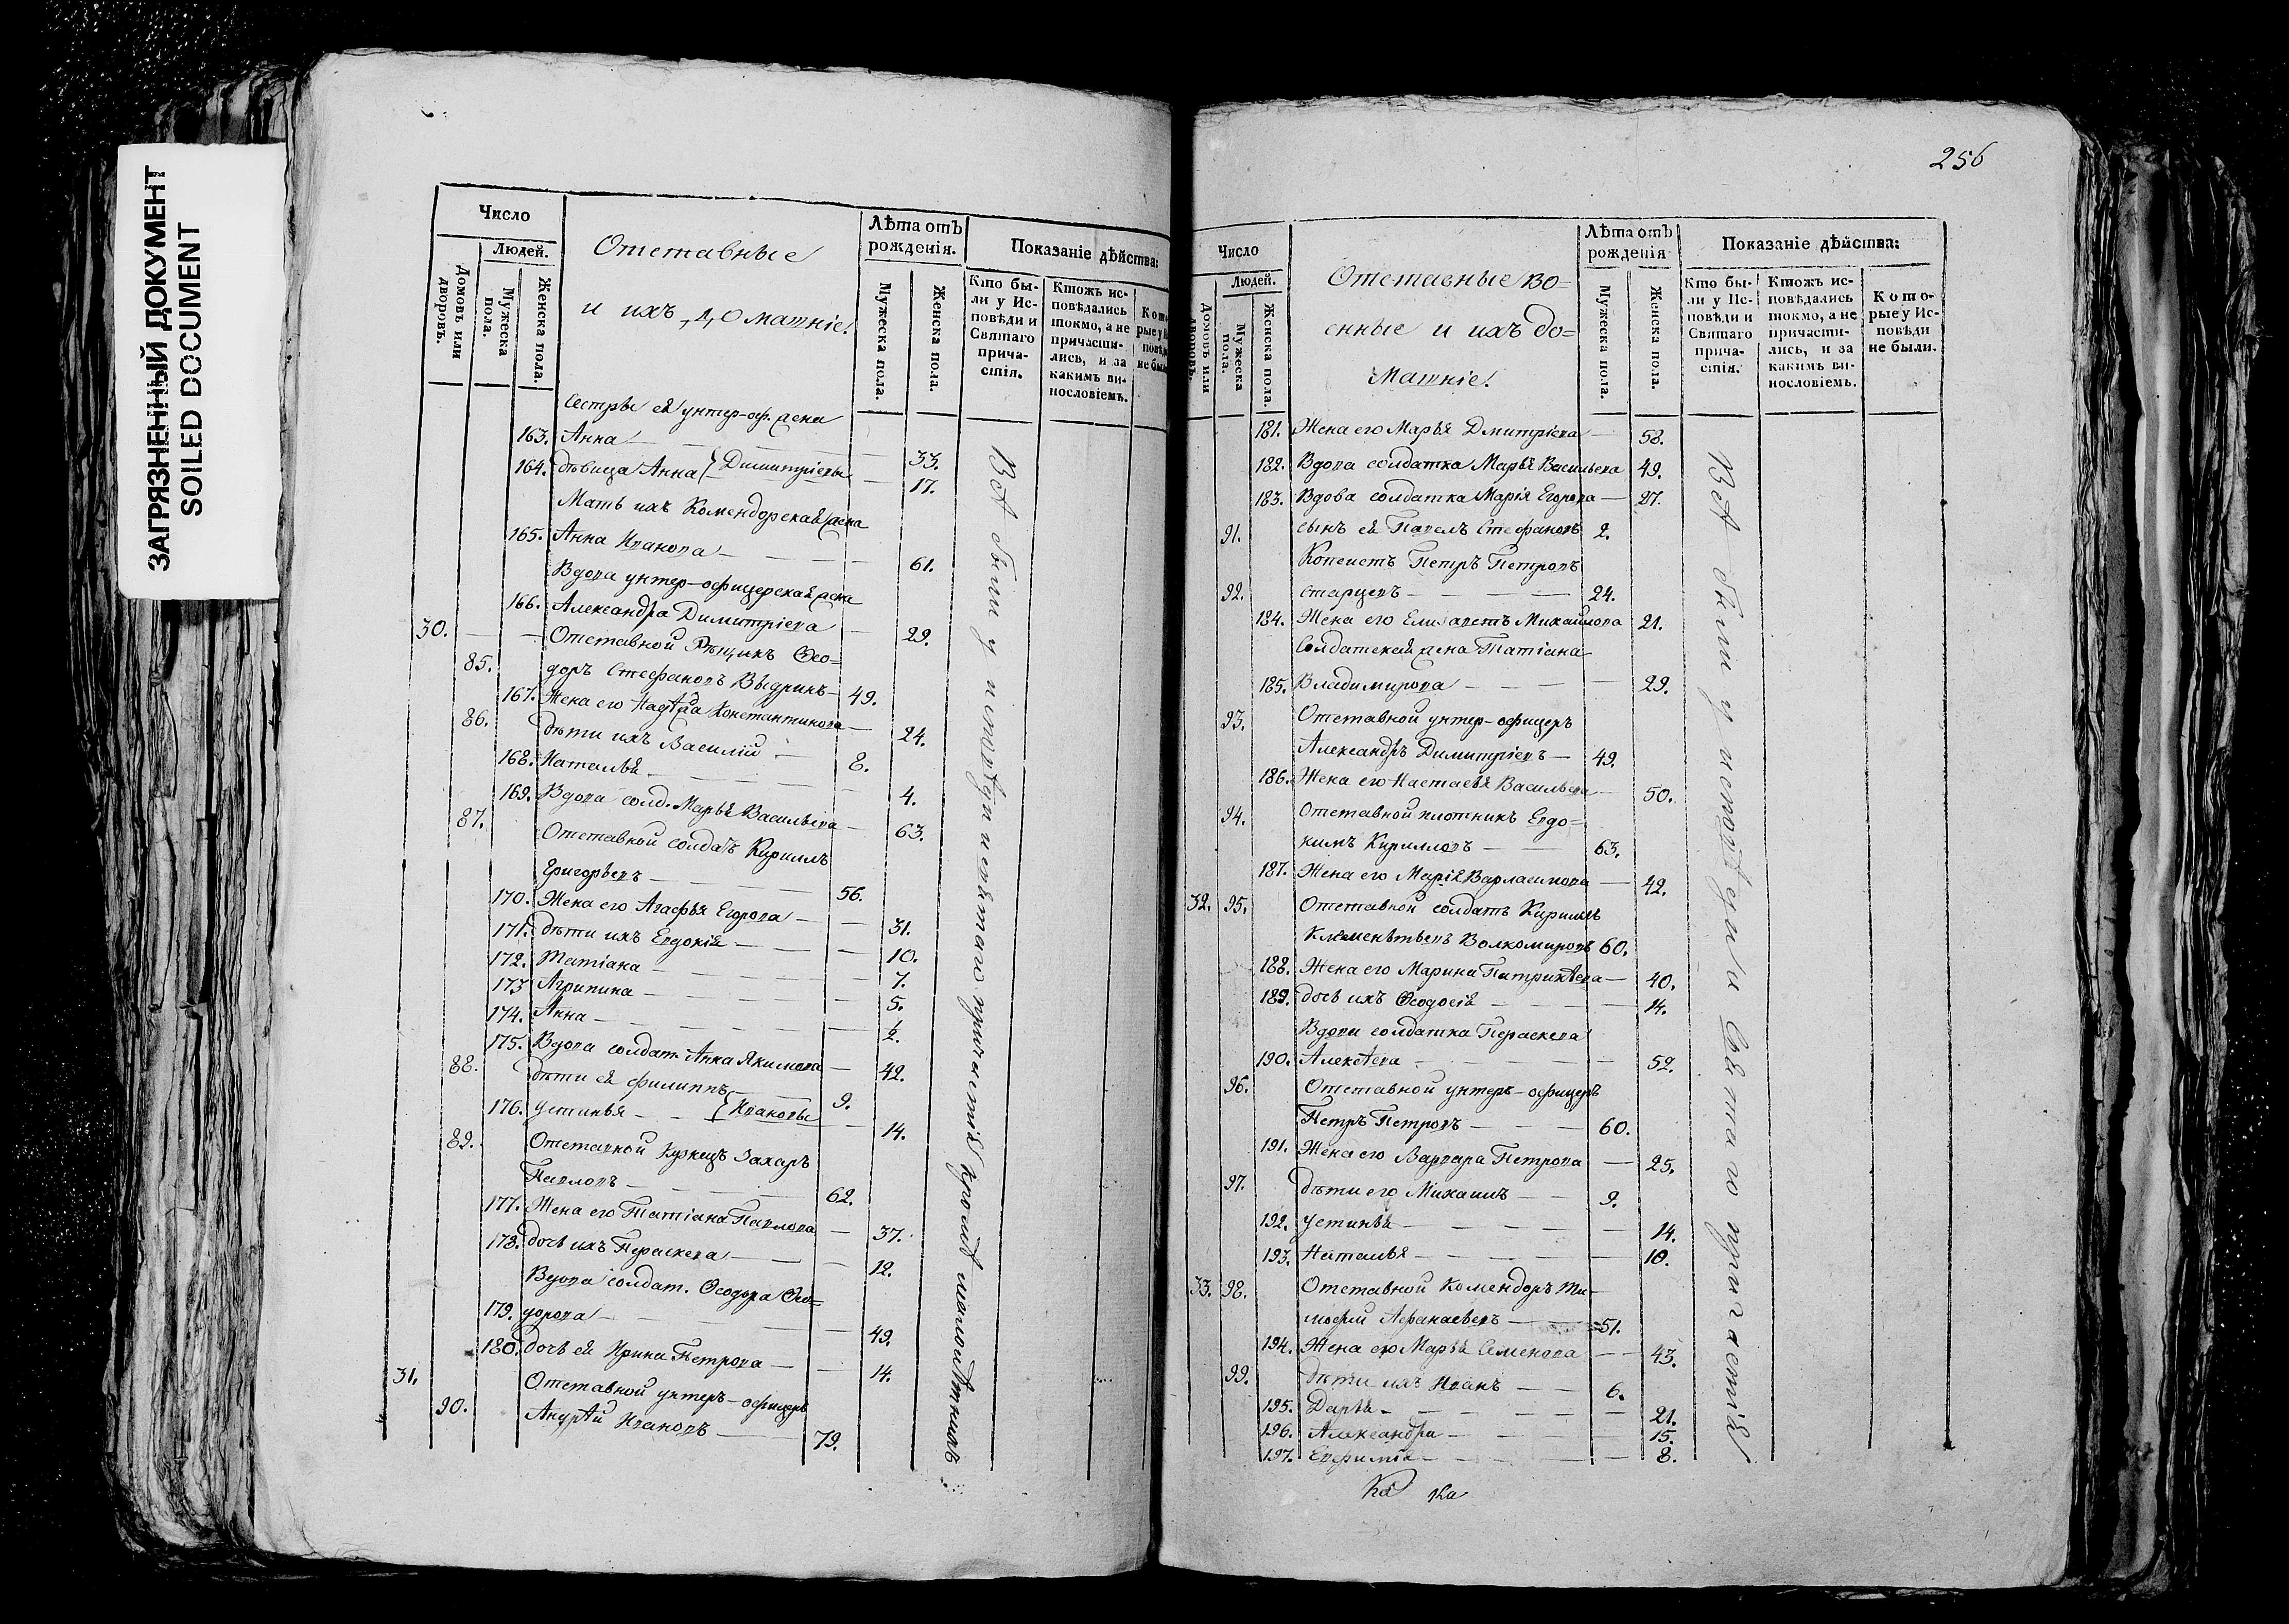 ЗАГРЯЗНЕННЫЙ ДОКУМЕНТ
SOILED DOCUMENT
Число
Людей.
Домовъ или дворовъ.
Мужеска пола.
Женска пола.
Отставные
и ихъ домашніе.
Лѣта отъ рожденія.
Мужеска пола.
Женска пола.
Показаніе дѣйства:
Кто были у Исповѣди и Святаго причастія.
Ктожъ исповѣдались токмо, а не причастились, и за какимъ винословіемъ.
Сестры ея унтер-оф. жена
163. Анна — 33.
164. дѣвица Анна } Димитріевы — 17.
Мать ихъ Комендорская жена
165. Анна Иванова — 61.
Вдова унтер-офицерская жена
166. Александра Димитріева — 29.
30. Отставной Рѣщикъ Ѳео=
85. доръ Стефановъ Выдринъ — 49.
167. Жена его Надѣжда Константинова — 24.
86. дѣти ихъ Василій — 8.
168. Наталья — 4.
169. Вдова солд. Марья Васильева — 63.
87. Отставной солдатъ Кириллъ
Григорьевъ — 56.
170. Жена его Агафья Егорова — 31.
171. дѣти ихъ Евдокія — 10.
172. Татіана — 7.
173 Агрипина — 5.
174. Анна — 2.
175. Вдова солдат. Анна Якимова — 42.
88. дѣти ея Филиппъ — 9.
176. Устинья — } Ивановы — 14.
89. Отставной Кузнецъ Захаръ
Павловъ — 62.
177. Жена его Татіана Павлова — 37.
178. дочь ихъ Параскева — 12.
Вдова солдат. Ѳеодора Ѳео=
179. дорова — 49.
180. дочь ея Ирина Петрова — 14.
31. Отставной унтеръ-офицеръ
90. Андрѣй Ивановъ — 79.
Всѣ были у исповѣди и святаго причастія кромѣ малолѣтнихъ
256
Число
Людей.
Домовъ или дворовъ.
Мужеска пола.
Женска пола.
Отставные во=
енные и ихъ до=
машніе.
Лѣта отъ рожденія
Мужеска пола.
Женска пола.
Показаніе дѣйства:
Кто были у Исповѣди и Святаго причастія.
Ктожъ исповѣдались токмо, а не причастились, и за какимъ винословіемъ.
Которые у Исповѣди не были.
181. Жена его Марья Дмитріева — 58.
182. Вдова солдатка Марья Васильева 49.
183. Вдова солдатка Марія Егорова — 27.
91. сынъ ея Павелъ Стефановъ 2.
Копеистъ Петръ Петровъ
92. старцевъ — 24.
184. Жена его Елисаветъ Михайлова 21.
Солдатская жена Татіана
185. Владимирова — 29.
93. Отставной унтер-офицеръ
Александръ Димитріевъ — 49.
186. Жена его Настасья Васильева — 50.
94. Отставной плотникъ Евдо=
кимъ Кирилловъ — 63.
187. Жена его Марія Варлаамова — 42.
32. 95. Отставной солдатъ Кириллъ
Клеменьтьевъ Волкомировъ 60.
188. Жена его Марина Патрикѣева — 40.
189. дочь ихъ Ѳеодосія — 14.
Вдова солдатка Параскева
190. Алексѣева — 52.
96. Отставной унтеръ-офицеръ
Петръ Петровъ — 60.
191. Жена его Варвара Петрова — 25.
97. дѣти его Михаилъ — 9.
192. Устинья — 14.
193. Наталья — 10.
33. 98. Отставной Комендоръ Ти-
мофей Афанасьевъ — 51.
194. Жена его Марья Семенова — 43.
99. дѣти ихъ Иванъ — 6.
195. Дарья — 21.
196. Александра — 15.
197. Евфимія — 8.
Всѣ были у исповѣди и Святаго причастія